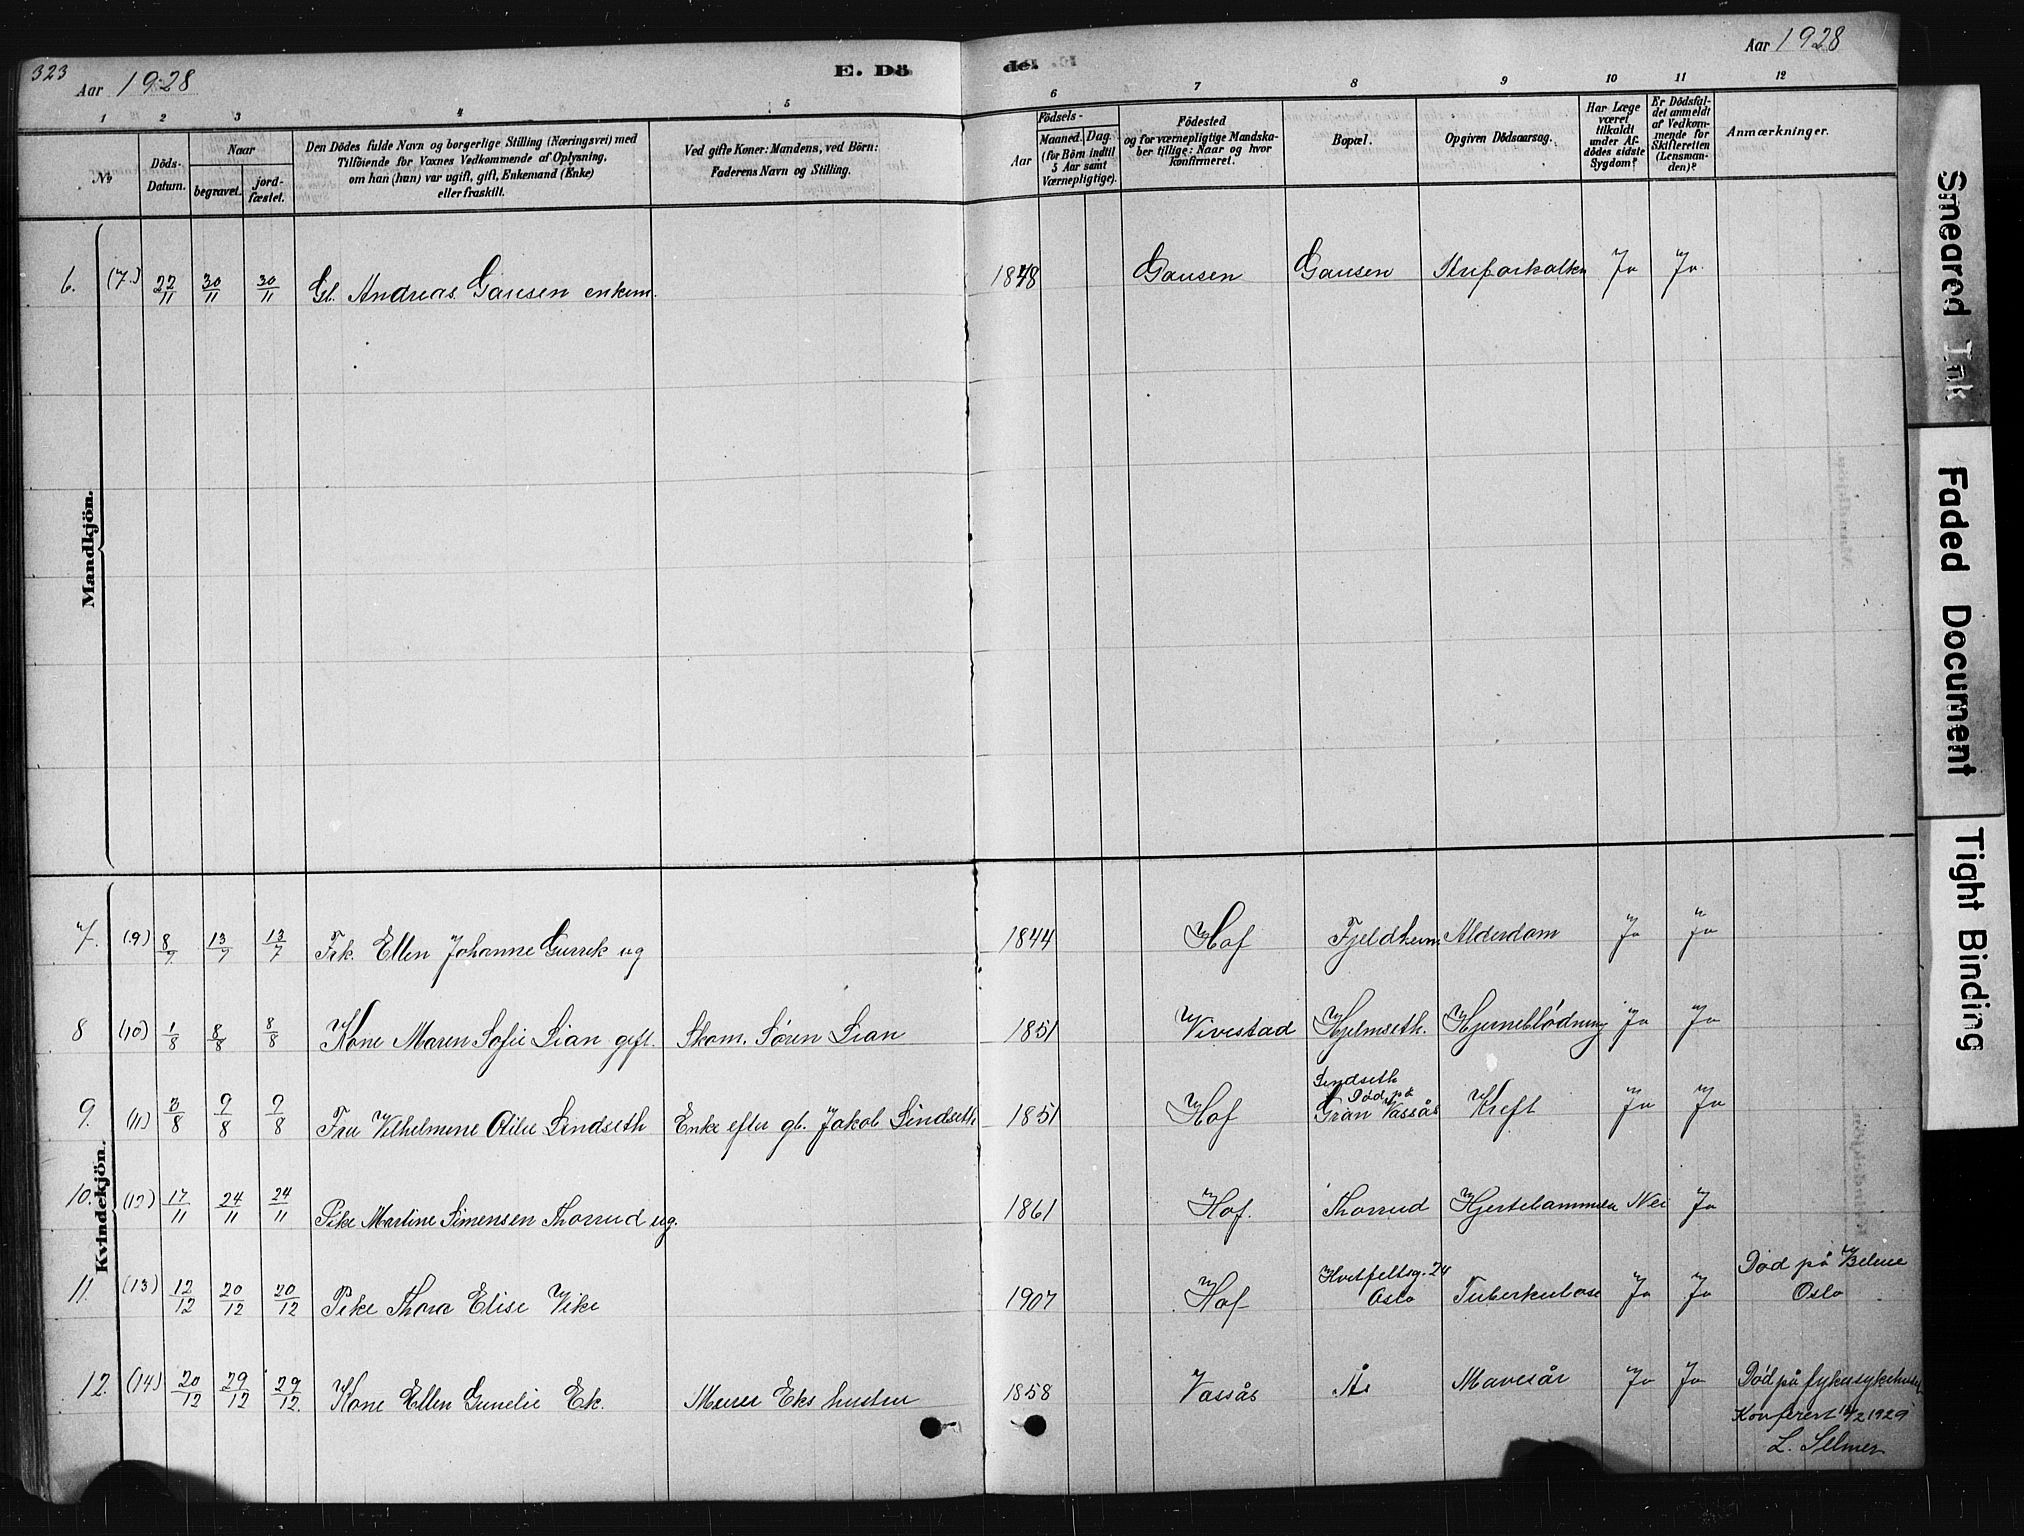 323
Aar 1928
E. Dö
de.
Aar 1928
1 2 3 4 5 6 7 8 9 10 11 12
No
Döds-
Datum.
Naar
begravet.
jord-
fæstet.
Den Dödes fulde Navn og borgerlige Stilling (Næringsvei) med
Tilföiende for Voxnes Vedkommende af Oplysning,
om han (hun) var ugift, gift, Enkemand (Enke)
eller fraskilt.
Ved gifte Koner: Mandens, ved Börn:
Faderens Navn og Stilling.
Födsels-
Aar
Maaned.
Dag.
(for Börn indtil
5 Aar samt
Værnepligtige).
Födested
og for værnepligtige Mandska-
ber tillige: Naar og hvor
konfirmeret.
Bopæl.
Opgiven Dödsaarsag.
Har Læge
været
tilkaldt
under Af-
dödes sidste
Sygdom?
Er Dödsfal-
det anmeldt
af Vedkom-
mende for
Skifteretten
(Lensman-
den)?
Anmærkninger.
Mandkjön.
6. (7.) 22/11 30/11 30/11 Gl. Andreas Gausen enkem. 1848 Gausen Gausen Ja Ja
Kvindekjön.
7. (9) 8/7 13/7 13/7 Frk. Ellen Johanne Gurrik ug 1844 Hof Fjeldheim Alderdom Ja Ja
8 (10) 1/8 8/8 8/8 Kone Maren Sofie Lian gift. Skom. Sören Lian 1851 Vivestad Hjelmseth. Hjerneblödning Ja Ja
Lindseth
Död på
9. (11) 3/8 9/8 9/8 Fru Vilhelmine Otilie Lindseth Enke efter gl. Jakob Lindseth 1851 Hof Gran Vassås Kreft Ja Ja
10. (12) 17/11 24/11 24/11 Pike Martine Simensen Thorrud ug. 1861 Hof. Thorrud Hjertelammelse Nei Ja
11. (13) 12/12 20/12 20/12 Pike Thora Elise Vike 1907 Hof Hvitfeltsg. 24
Oslo Tuberkulose Ja Ja Død på
Oslo
12. (14) 20/12 29/12 29/12 Kone Ellen Gunelie Ek. Murer Eks hustru 1858 Vassås Ås Mavesår Ja Ja Död på
Konferert 14/2 1929
L. Selmer
Smeared Ink
Faded Document
Tight Binding